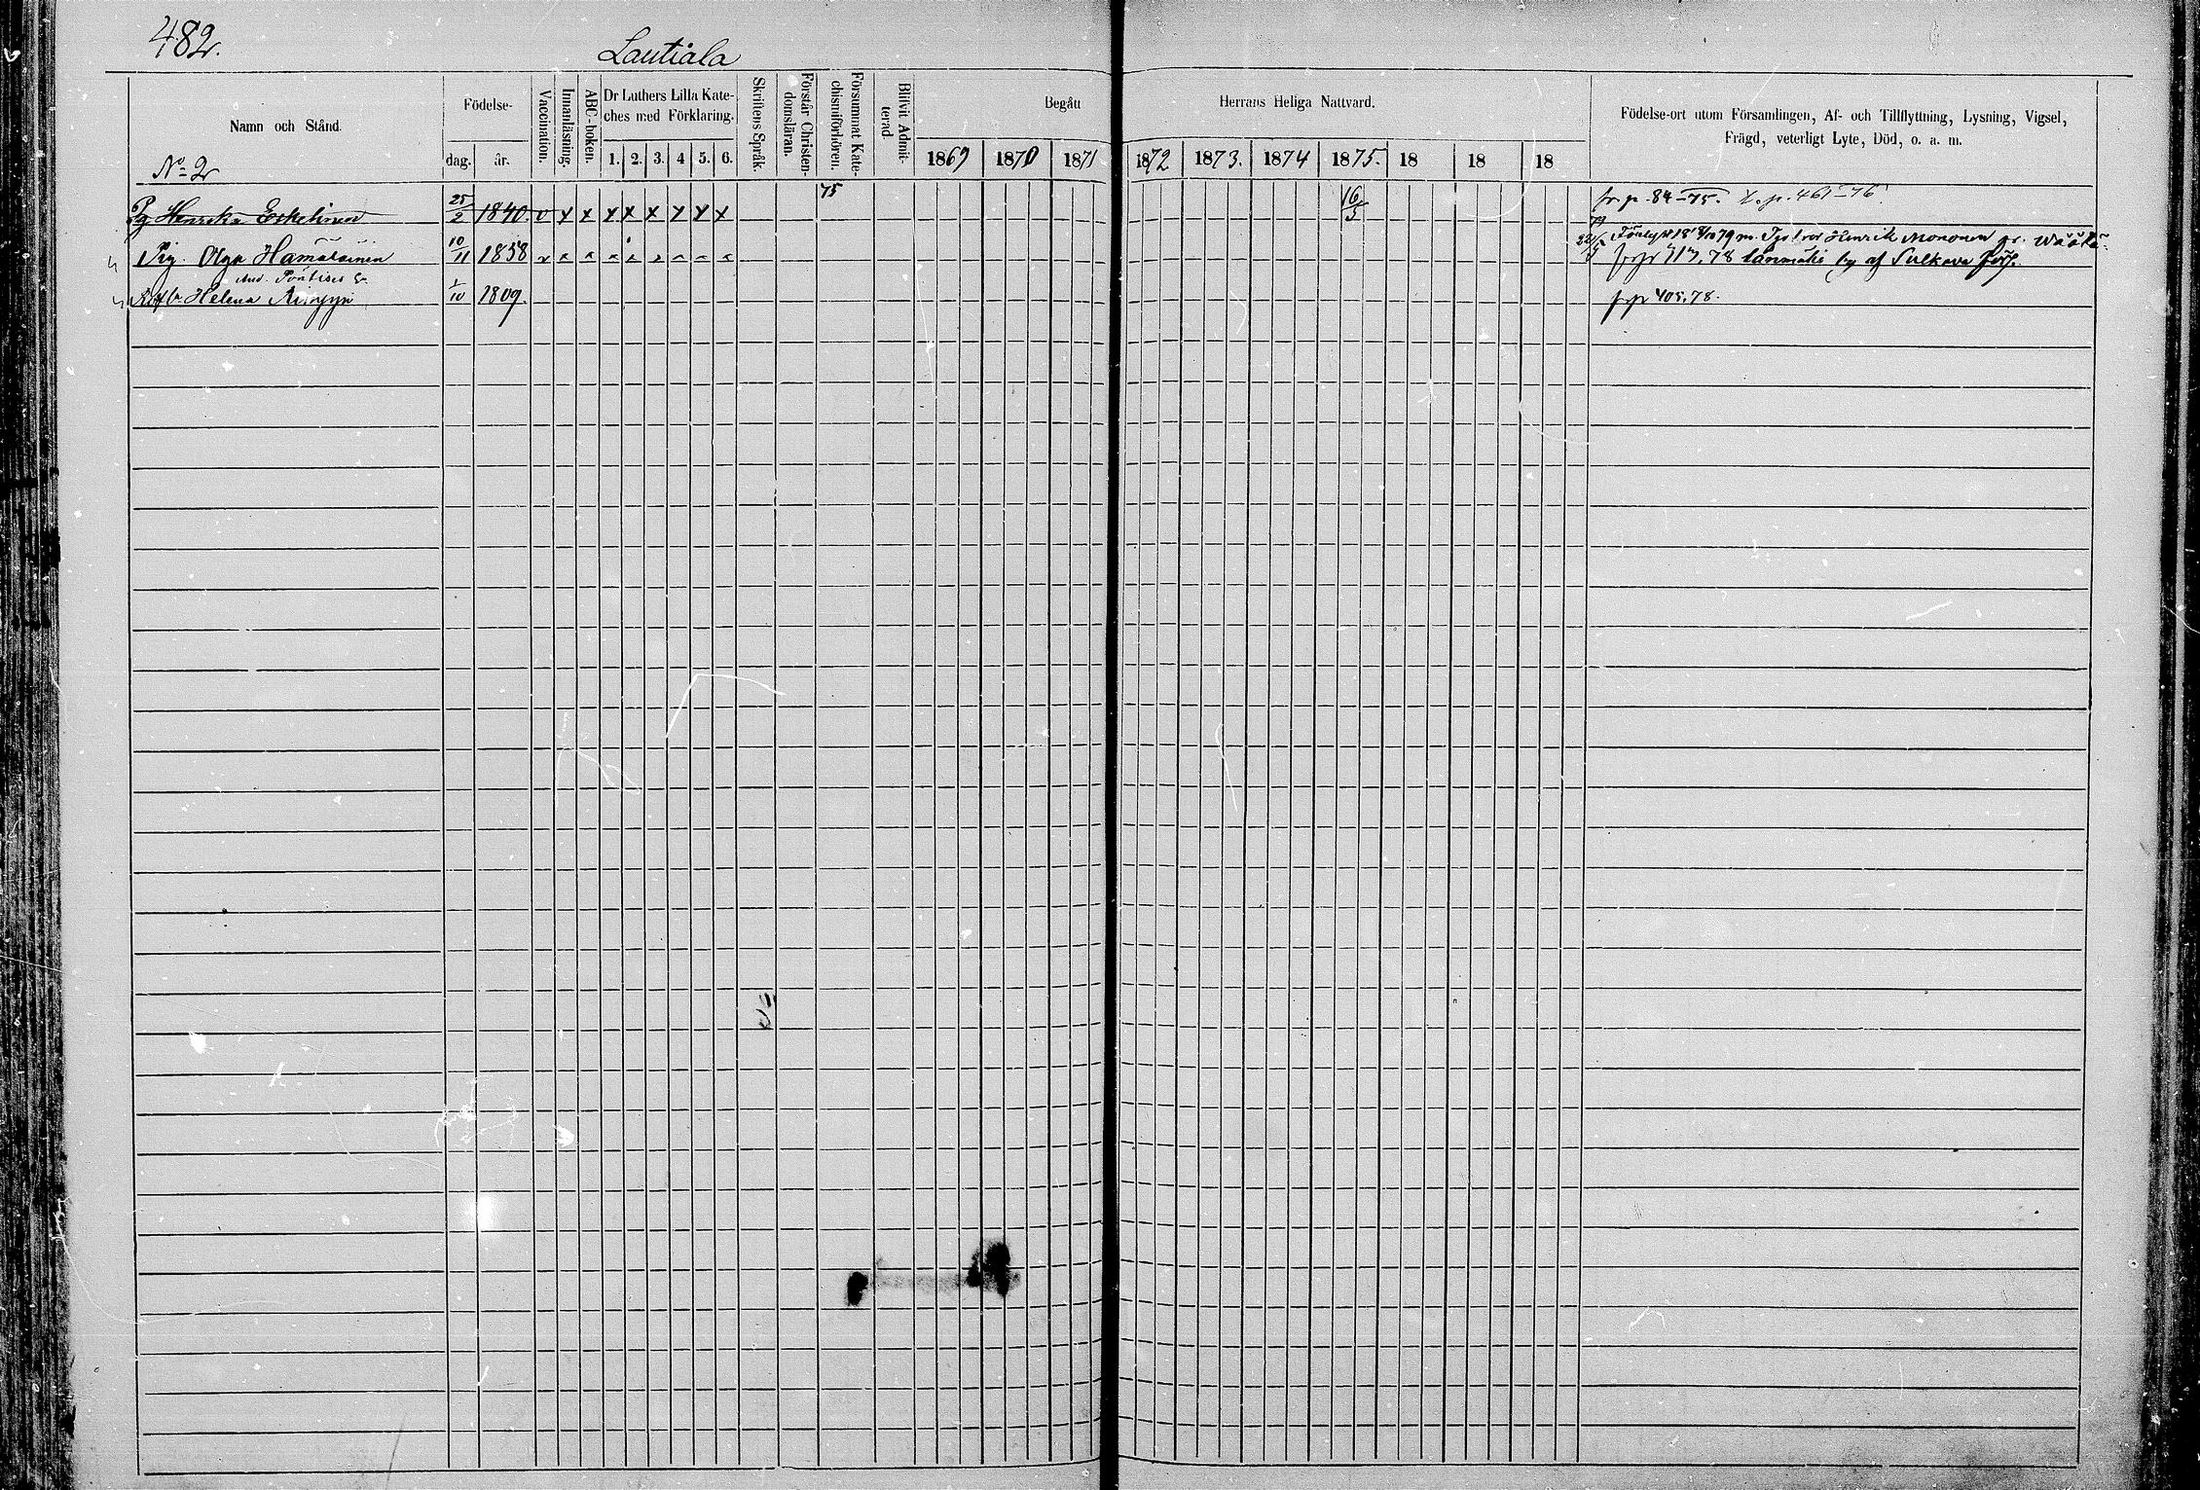 482.
Lautiala
Namn och Stånd.
Födelse-
dag.
år.
Vaccination.
Innanläsning.
ABC-boken.
Dr Luthers Lilla Kate-
ches med Förklaring.
1. 2. 3. 4 5. 6.
Skriftens Språk.
Förstår Christen-
domsläran.
Försummat Kate-
chismiförhören.
Blifvit Admit-
terad.
Begått Herrans Heliga Nattvard.
1869 1870 1871 1872 1873. 1874 1875. 18 18 18
Födelse-ort utom Församlingen, Af- och Tillflyttning, Lysning, Vigsel,
Frägd, veterligt Lyte, Död, o. a. m.
No 2
Pg Henrika Eskelinen 25/2 1840 v x x x x x x x x 75 16/5 fr. p. 84-75. t. p. 461-76.
Pig. Olga Hämäläinen 10/11 1858 Henrik Mononen
78 Lanmäki by af Sulkava
Helena 1/10 1809. frp 405.78.